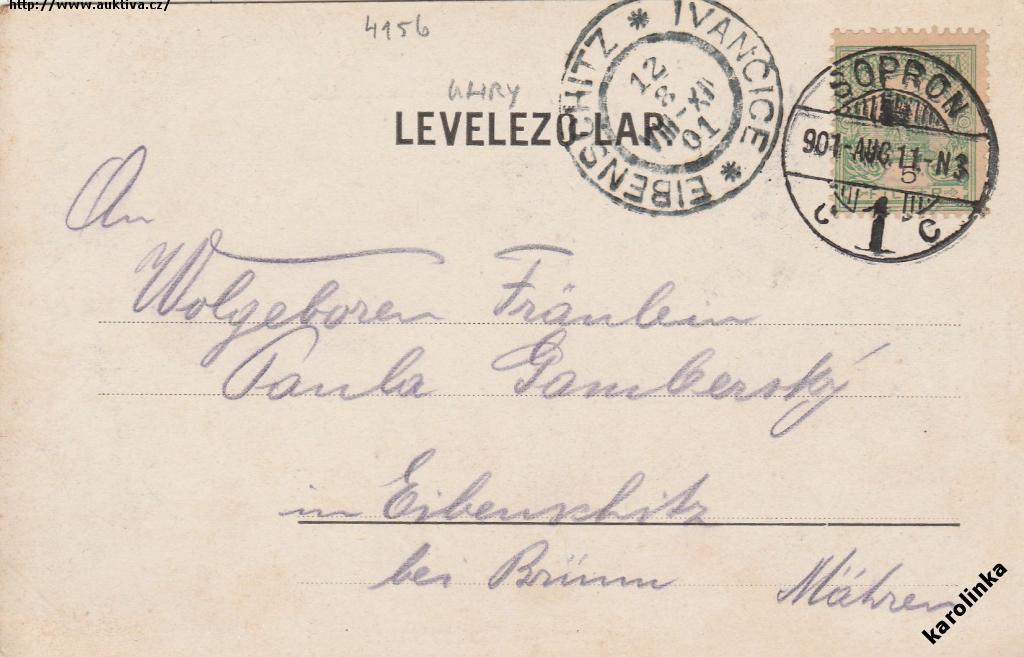 http://www.auktiva.cz/
4156
UHRY
LEVELEZŐ-LAP
EIBENSCHITZ * IVANČICE *
12
8
VIII-XII
01
SOPRON
901-AUG.11-N3
5
1
C C
An
Wolgeboren Fräulein
Paula Gamberský
in Eibenschitz
bei Brünn Mähren
karolinka